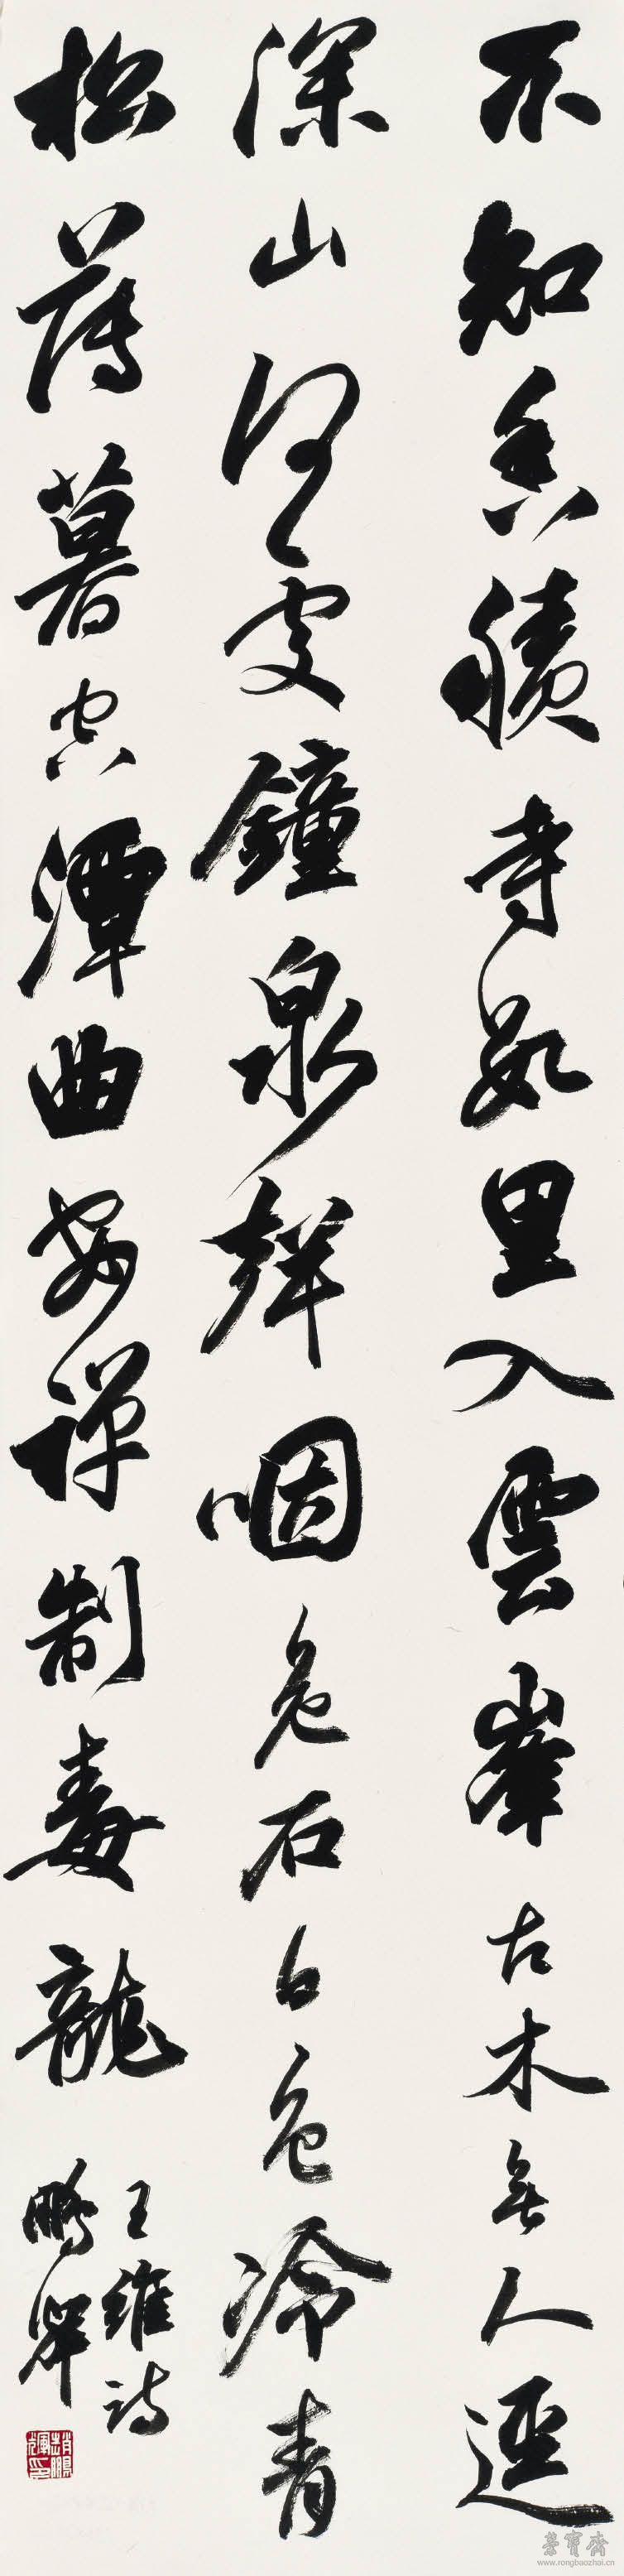 不知香積寺數里入雲峯古木無人逕
深山何處鐘泉聲咽危石日色冷青
松薄暮空潭曲安禪制毒龍
王維詩
鵬舉
榮寶齋
www.rongbaozhai.cn